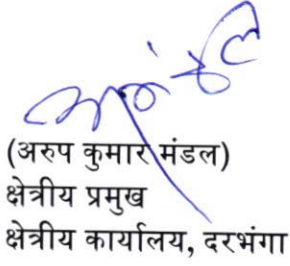 (अरुप कुमार मंडल)
क्षेत्रीय प्रमुख
क्षेत्रीय कार्यालय, दरभंगा